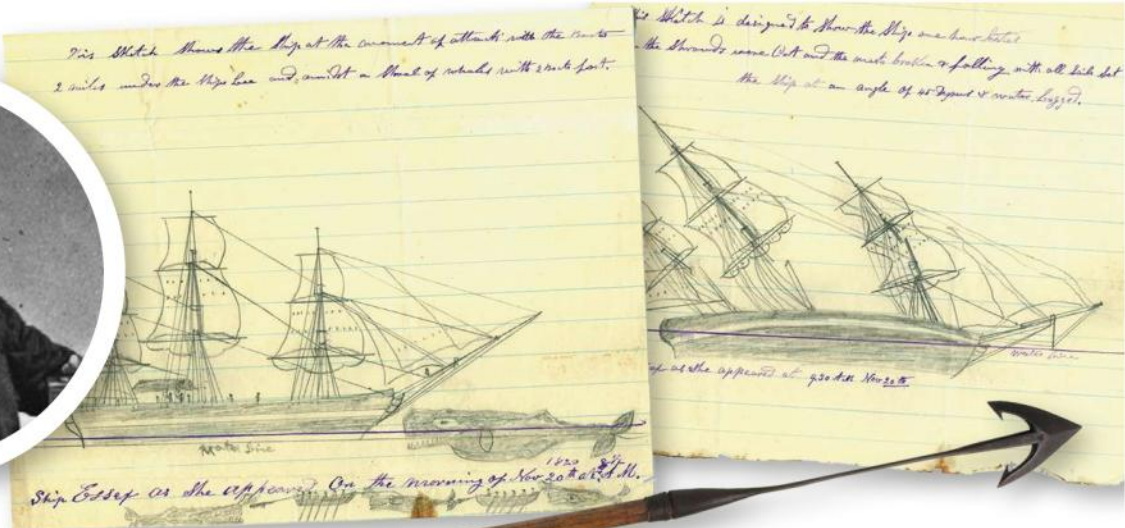 This Sketch Shows the Ship at the moment of attack with the boats
2 miles under the Ships Lee and, amidst a Shoal of whales with 2 boats fast.
Water Line
Ship Essex as She appeared On the morning of Nov 20th 1820 at A.M.
Sketch is designed to Show the Ship one hour later
the Shrouds were Cut and the masts broken & falling with all Sails Set
the Ship at an angle of 45 Degrees & water logged.
Water Line
as She appeared at 9.30 A.M. Nov 20th